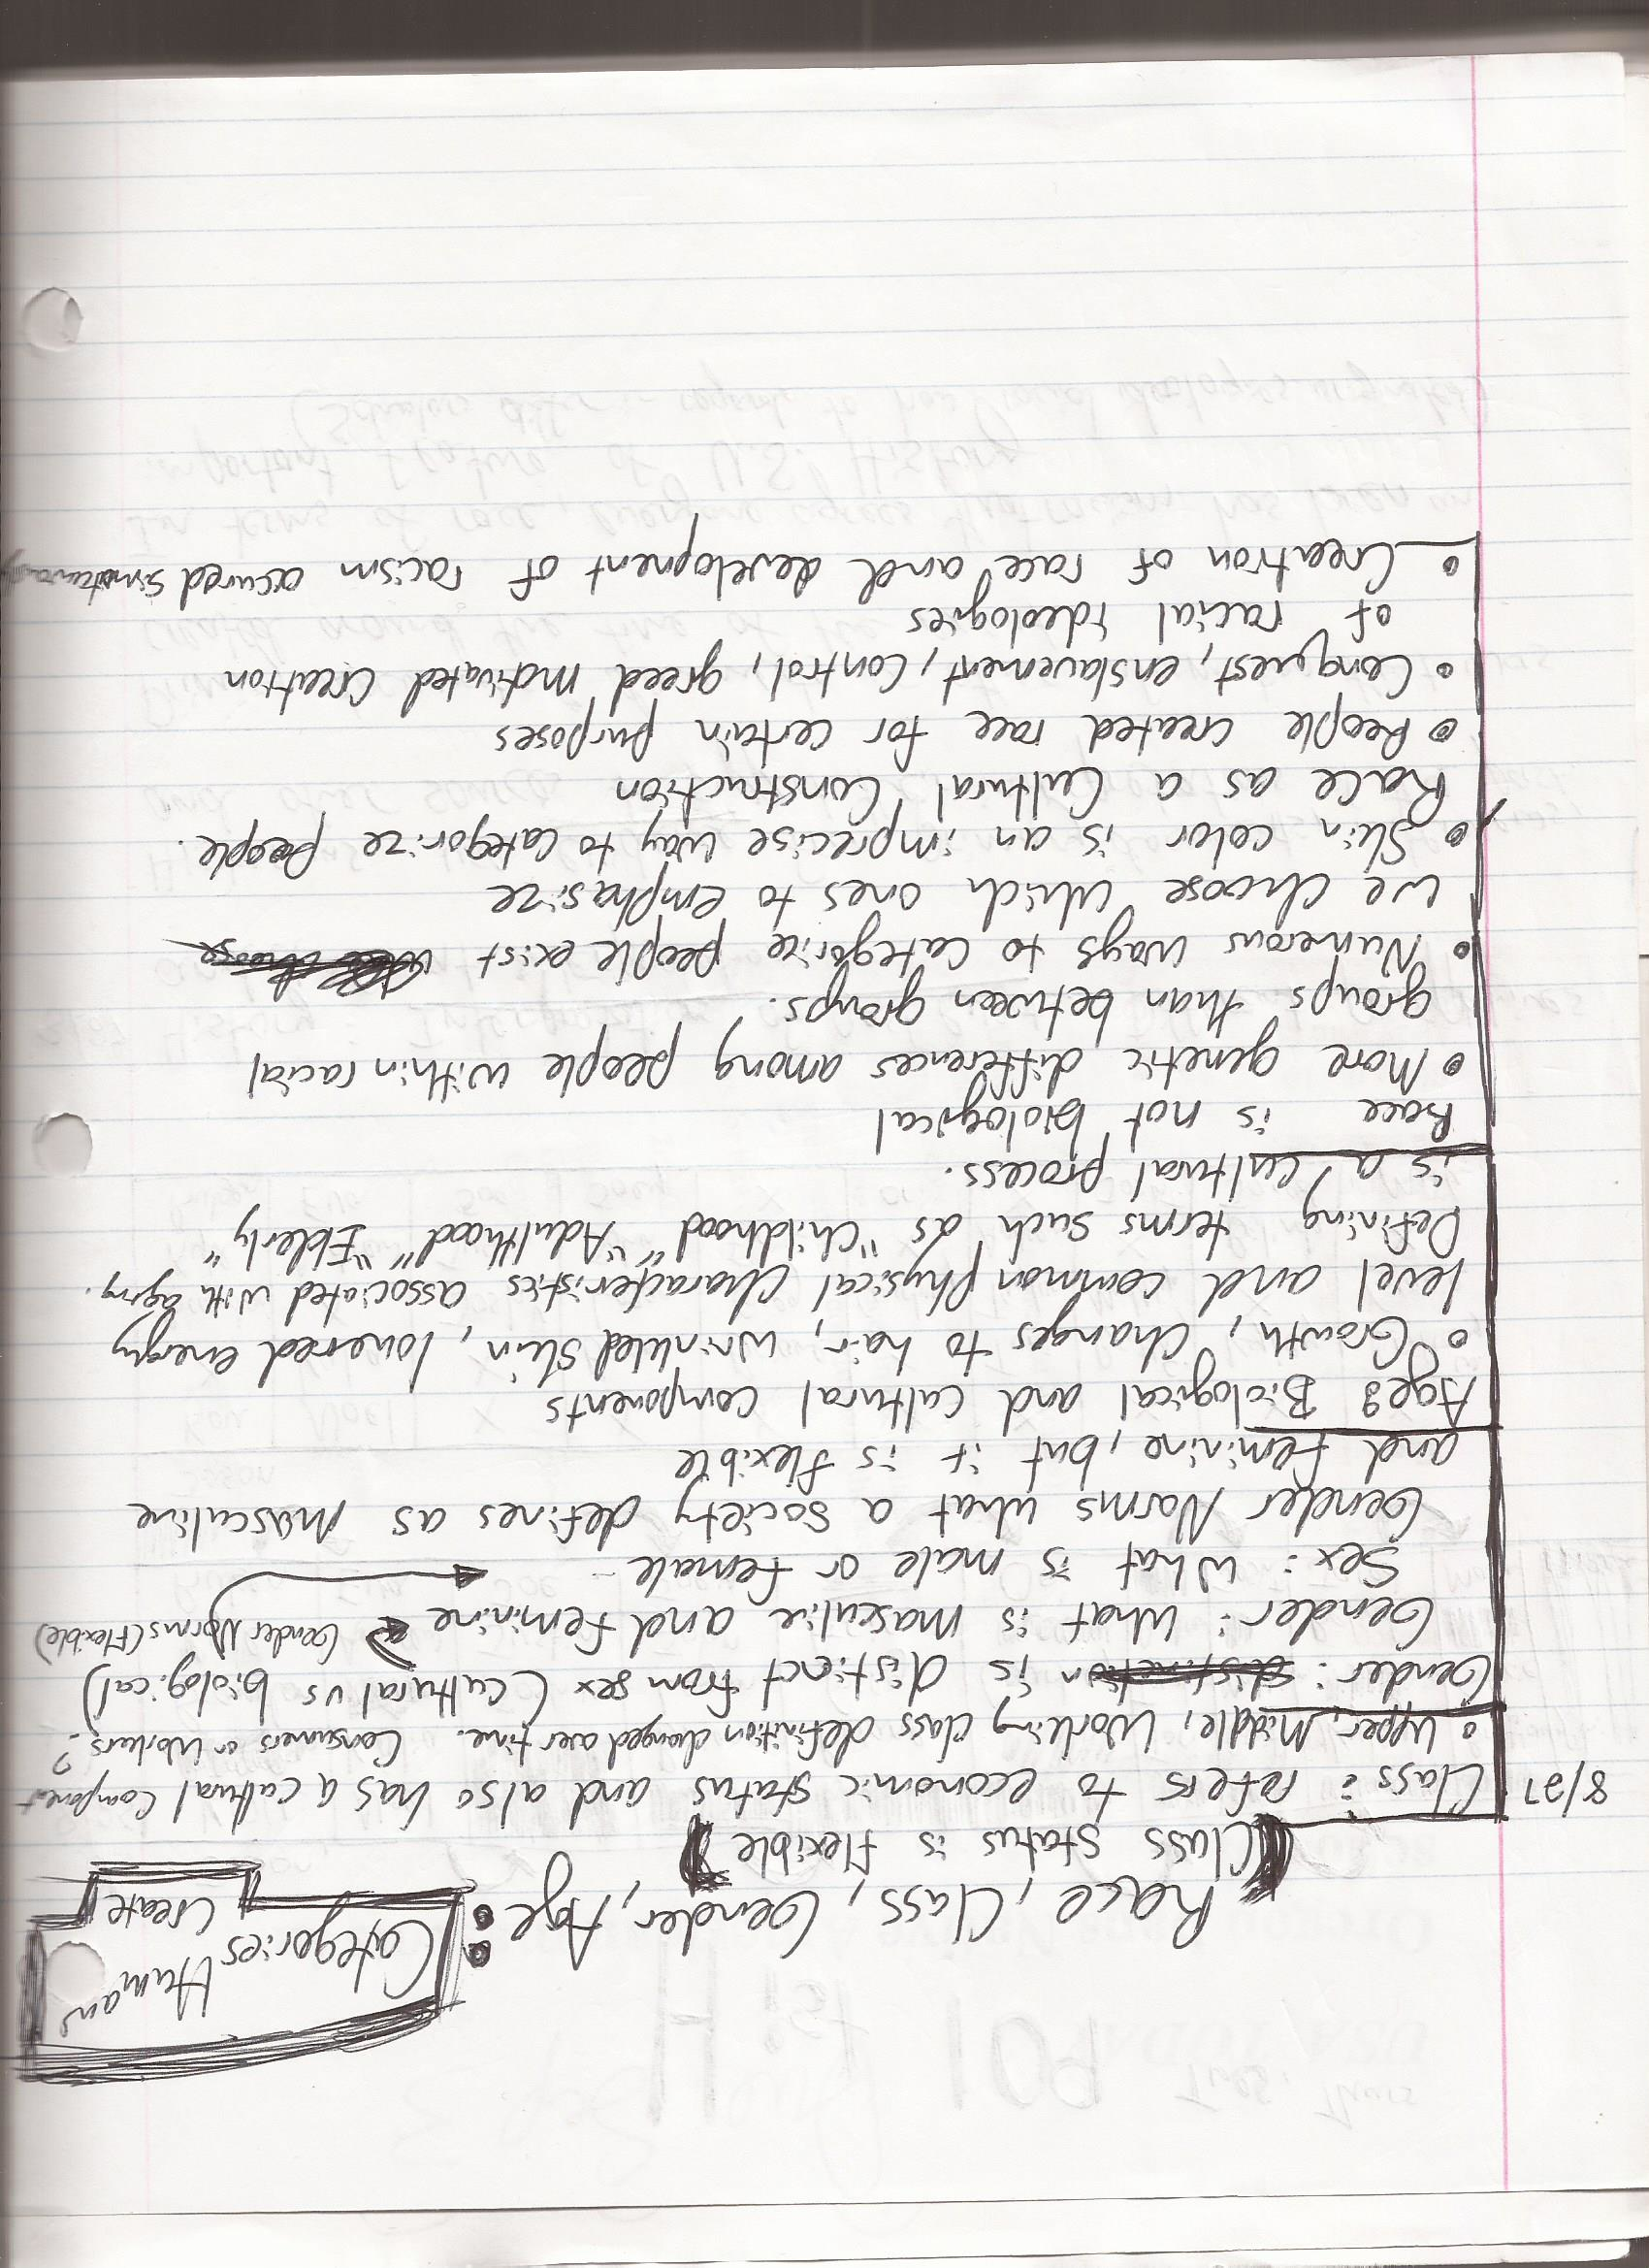 Race, Class, Gender, Age:
Categories Human
Create
(Class status is flexible)
8/27 Class: refers to economic status and also has a cultural component
• Upper, Middle, Working class definition changed over time. Consumers or Workers?
Gender: distinction is distinct from sex (cultural vs biological)
Gender: what is masculine and feminine Gender Norms (Flexible)
Sex: what is male or female
Gender Norms what a society defines as masculine
and feminine, but it is flexible
Age: Biological and cultural components
• Growth, changes to hair, wrinkled skin, lowered energy
level and common physical characteristics associated with aging.
Defining terms such as "Childhood" "Adulthood" "Elderly"
is a cultural process.
Race is not biological
• More genetic differences among people within racial
groups than between groups.
• Numerous ways to categorize people exist we choose
we choose which ones to emphasize
• Skin color is an imprecise way to categorize people.
Race as a Cultural Construction
• People created race for certain purposes
• Conquest, enslavement, control, greed motivated creation
of racial ideologies
• Creation of race and development of racism occured